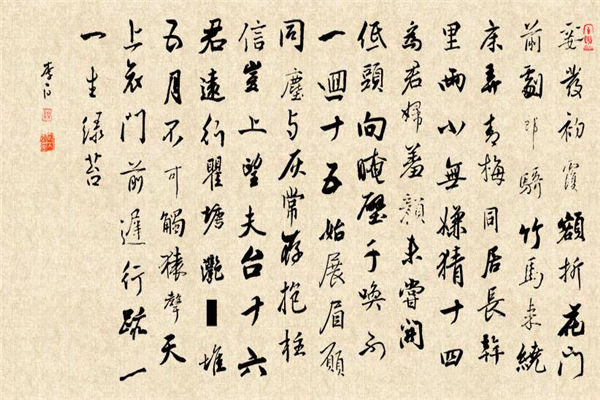 妾發初覆額折花门
前劇郎騎竹馬來繞
床弄青梅同居長幹
里兩小無嫌猜十四
為君婦羞顏未嘗開
低頭向暗壁千喚不
一迴十五始展眉願
同塵与灰常存抱柱
信豈上望夫台十六
君遠行瞿塘灩堆
五月不可觸猿聲天
上哀門前遲行跡一
一生緑苔
李白